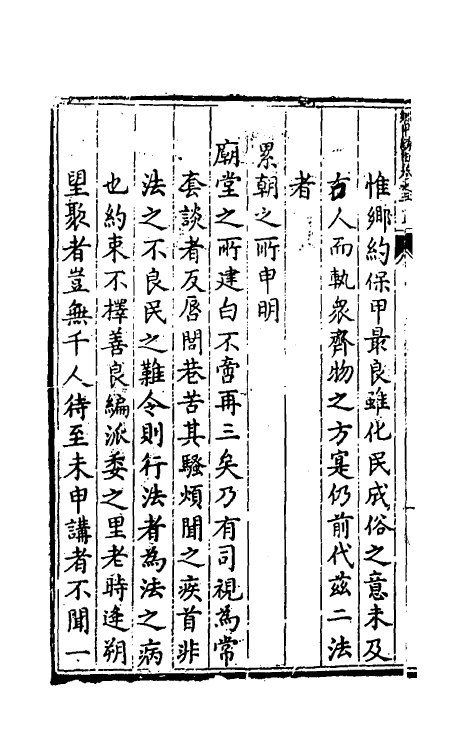 惟鄉約保甲最良雖化民成俗之意未及
古人而執衆齊物之方寔仍前代茲二法
者
累朝之所申明
廟堂之所建白不啻再三矣乃有司視為常
套談者反唇閭巷苦其騷煩聞之疾首非
法之不良民之難令則行法者為法之病
也約束不擇善良編派委之里老時逢朔
望聚者豈無千人待至未申講者不聞一